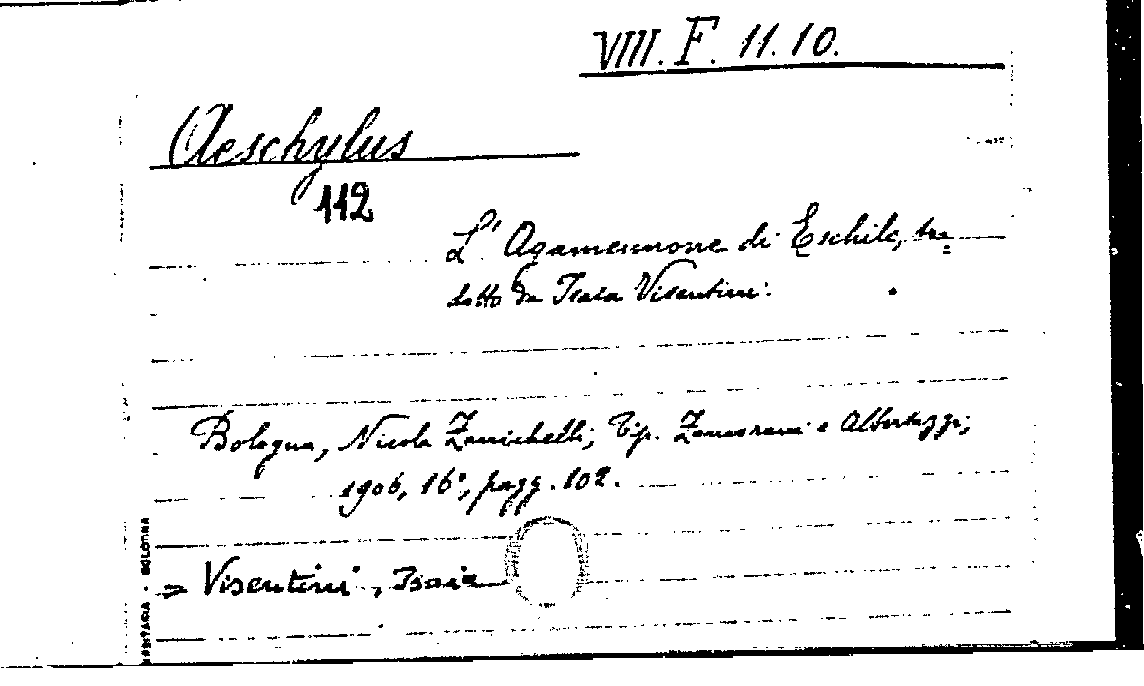 VIII. F. 11. 10.
Aeschylus
112
L'Agamennone di Eschilo, tra=
dotto da Isaia Visentini.
Bologna, Nicola Zanichelli; Tip. Zamorani e Albertazzi;
1906, 16°, pagg. 102.
= Visentini, Isaia
BOLOGNA